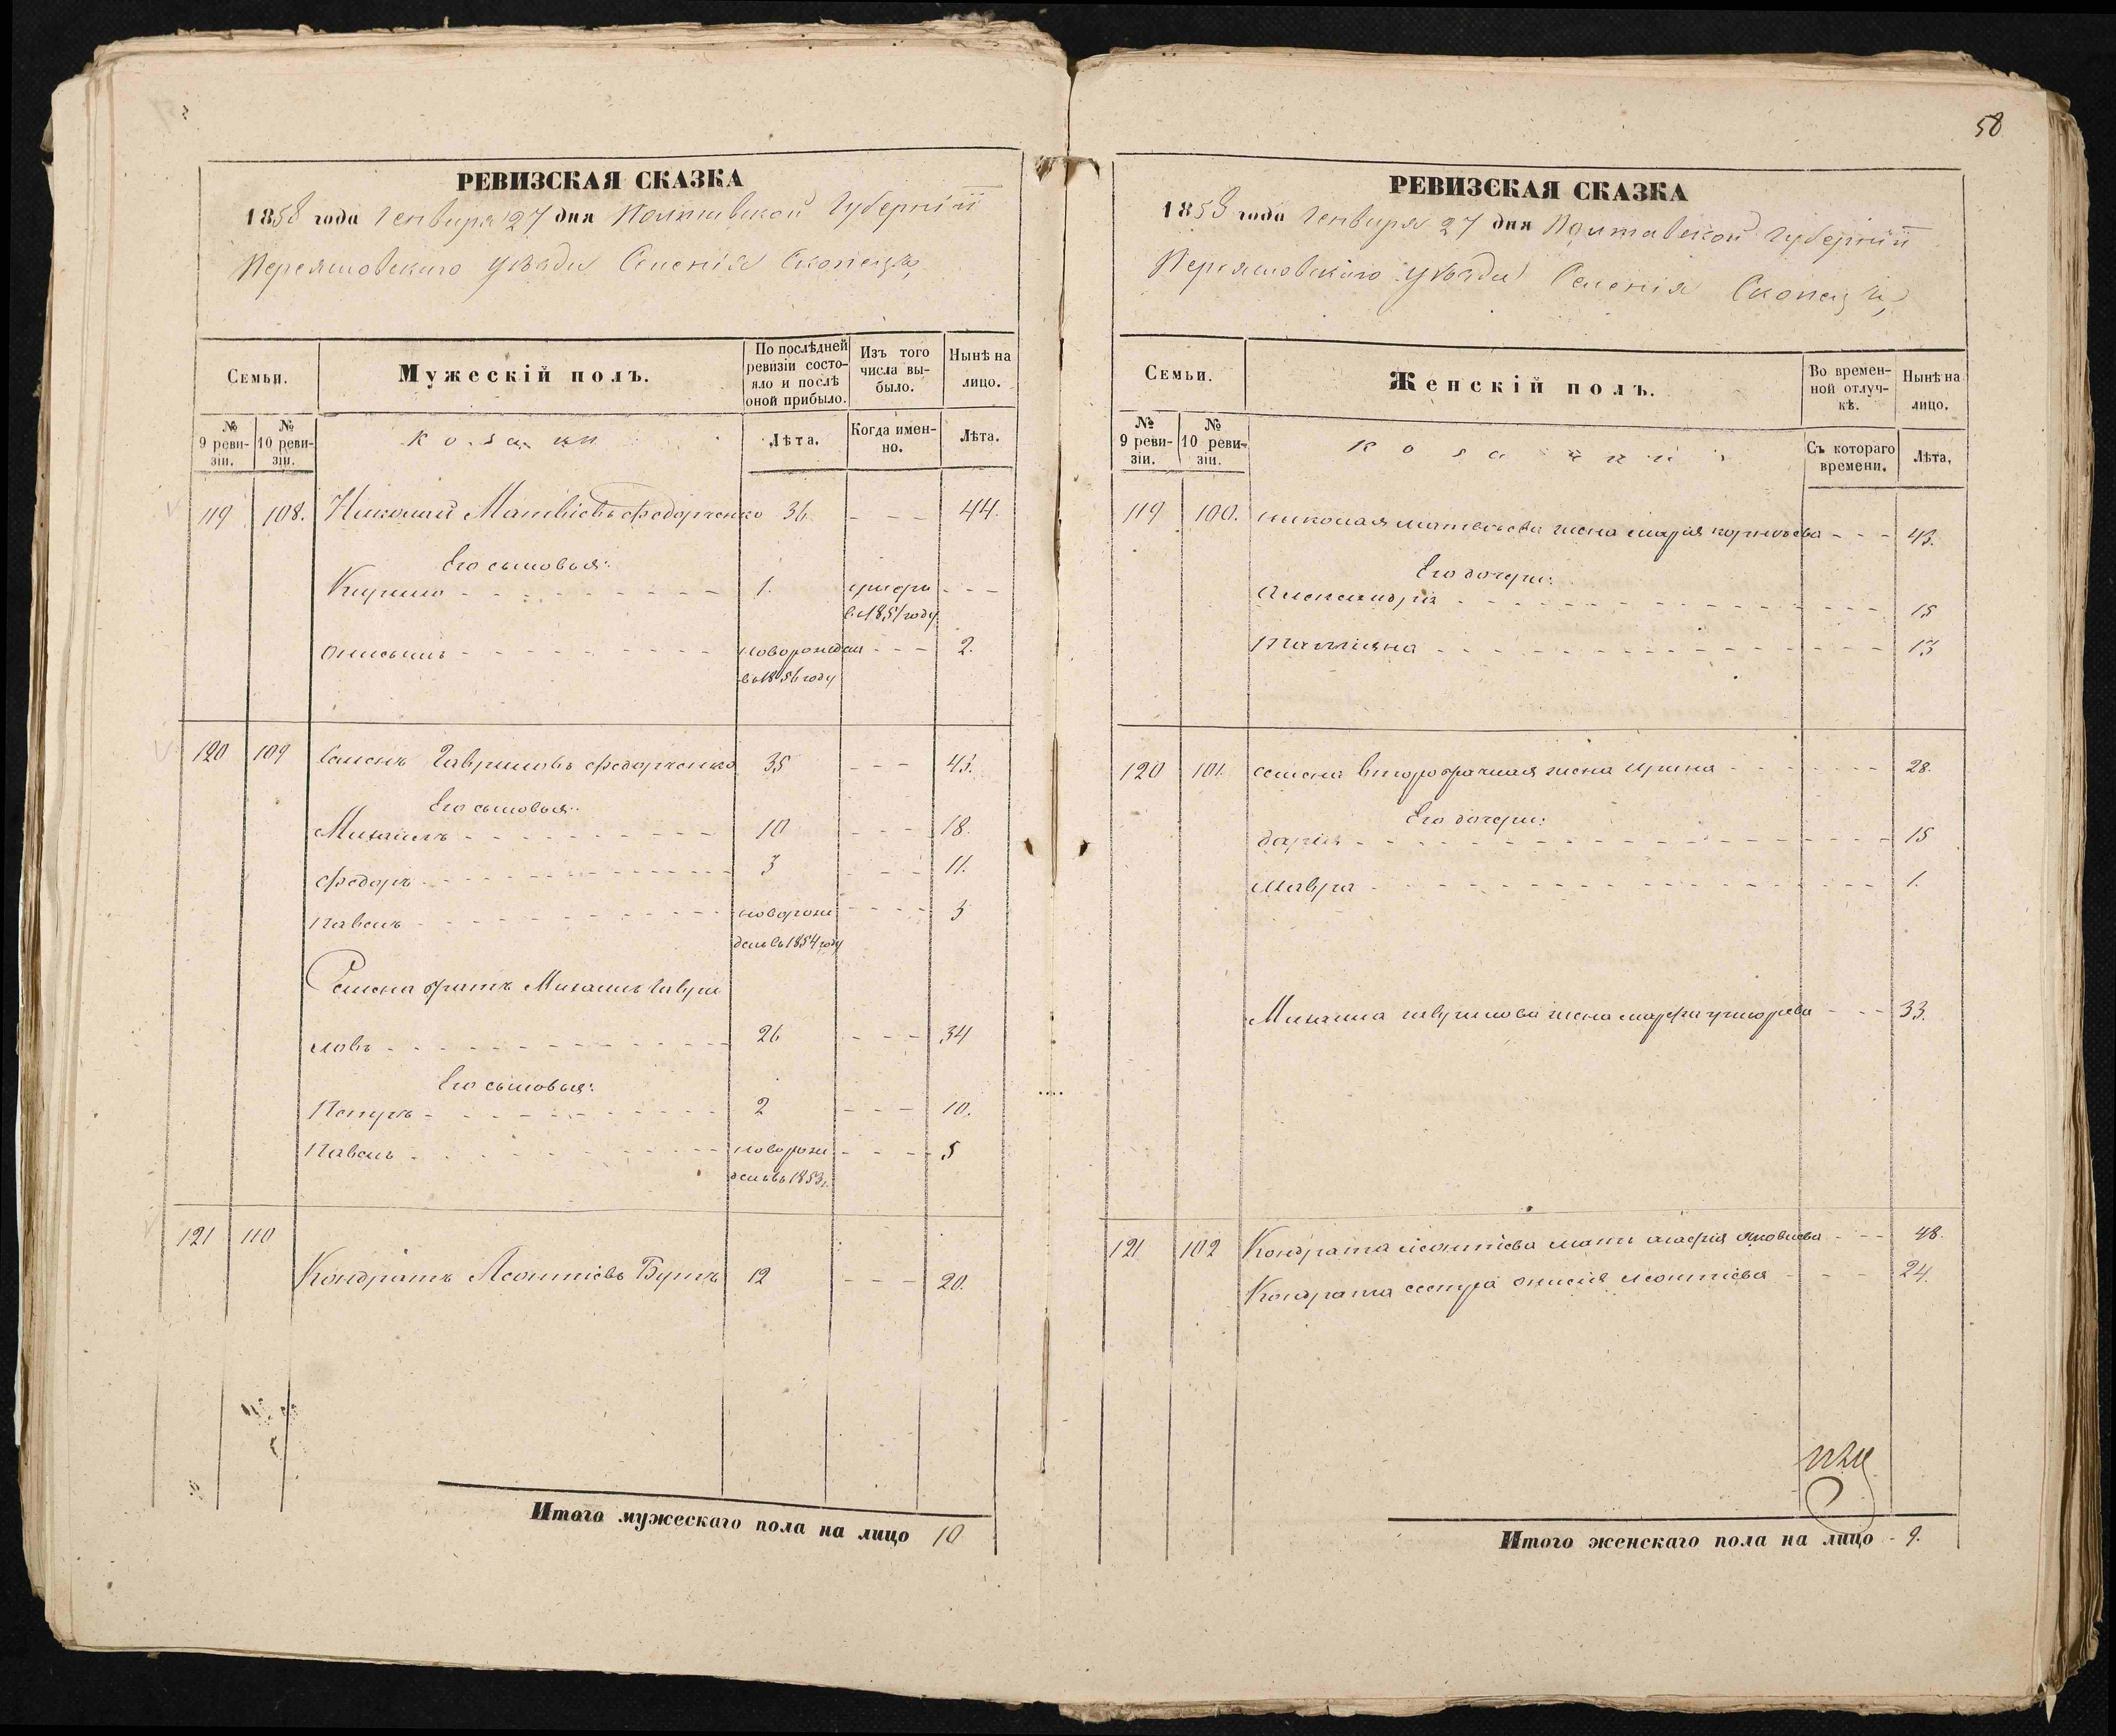 РЕВИЗСКАЯ СКАЗКА
1858 года Генваря 27 дня Полтавской Губерніи
Переяславскаго уѣзда Селенія Скопецка,
Семьи.
Мужескій полъ.
По послѣдней ревизіи состояло и послѣ оной прибыло.
Изъ того числа выбыло.
Нынѣ на лицо.
№ 9 ревизіи.
№ 10 ревизіи.
Козаки
Лѣта.
Когда именно.
Лѣта.
119 108. Николай Матвіевъ Федорченко 36 - - - 44.
Его сыновья:
1. умеръ - - -
въ 1851 году
новорожден - - - 2.
въ 1856 году
120 109 Семенъ Гавриловъ Федорченко 35 - - - 43.
Его сыновья:
Михаилъ 10 - - - 18.
Федоръ 3 - - - 11.
Павелъ новорож - - - 3
денъ въ 1854 году
Семена братъ Михаилъ Гаври
ловъ 26 - - - 34
Его сыновья:
Петръ 2 - - - 10.
Павелъ новорож - - - 5
денъ въ 1853 г.
121 110
Кондратъ Леонтіевъ Бутъ 12 - - - 20.
Итого мужескаго пола на лицо 10
58
РЕВИЗСКАЯ СКАЗКА
1858 года Генваря 27 дня Полтавской Губерніи
Переяславскаго уѣзда Селенія Скопецка,
Семьи.
Женскій полъ.
Во временной отлучкѣ.
Нынѣ на лицо.
№ 9 ревизіи.
№ 10 ревизіи.
Козачки
Съ котораго времени.
Лѣта,
119 100. Николая Матвѣева жена Марія Корнѣева - - - 43.
Его дочери:
Александра 15
Татіяна 13
120 101. Семена второбрачная жена Ирина 28.
Его дочери:
Дарія 15
Мавра 1.
Михаила Гаврилова жена Марфа Григорьева - - - 33.
121 102 Кондрата Леонтіева мать Агафія Яковлева - - - 48.
Кондрата сестра Онисія Леонтіева - - - 24.
Итого женскаго пола на лицо - 9.